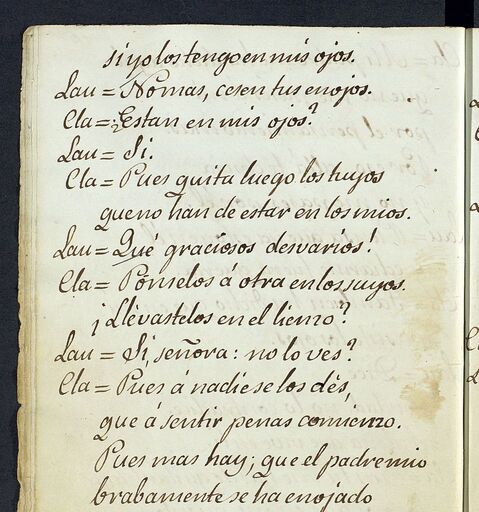 si yo los tengo en mis ojos.
Lau = No mas, cesen tus enojos.
Cla = ¿Estan en mis ojos?
Lau = Si.
Cla = Pues quita luego los tuyos
que no han de estar en los mios.
Lau = Qué graciosos desvarios!
Cla = Ponselos á otra en los suyos.
¡Llévastelos en el lienzo?
Lau = Si, señora: no lo ves?
Cla = Pues á nadie se los dés,
que á sentir penas comienzo.
Pues mas hay; que el padre mio
brabamente se ha enojado